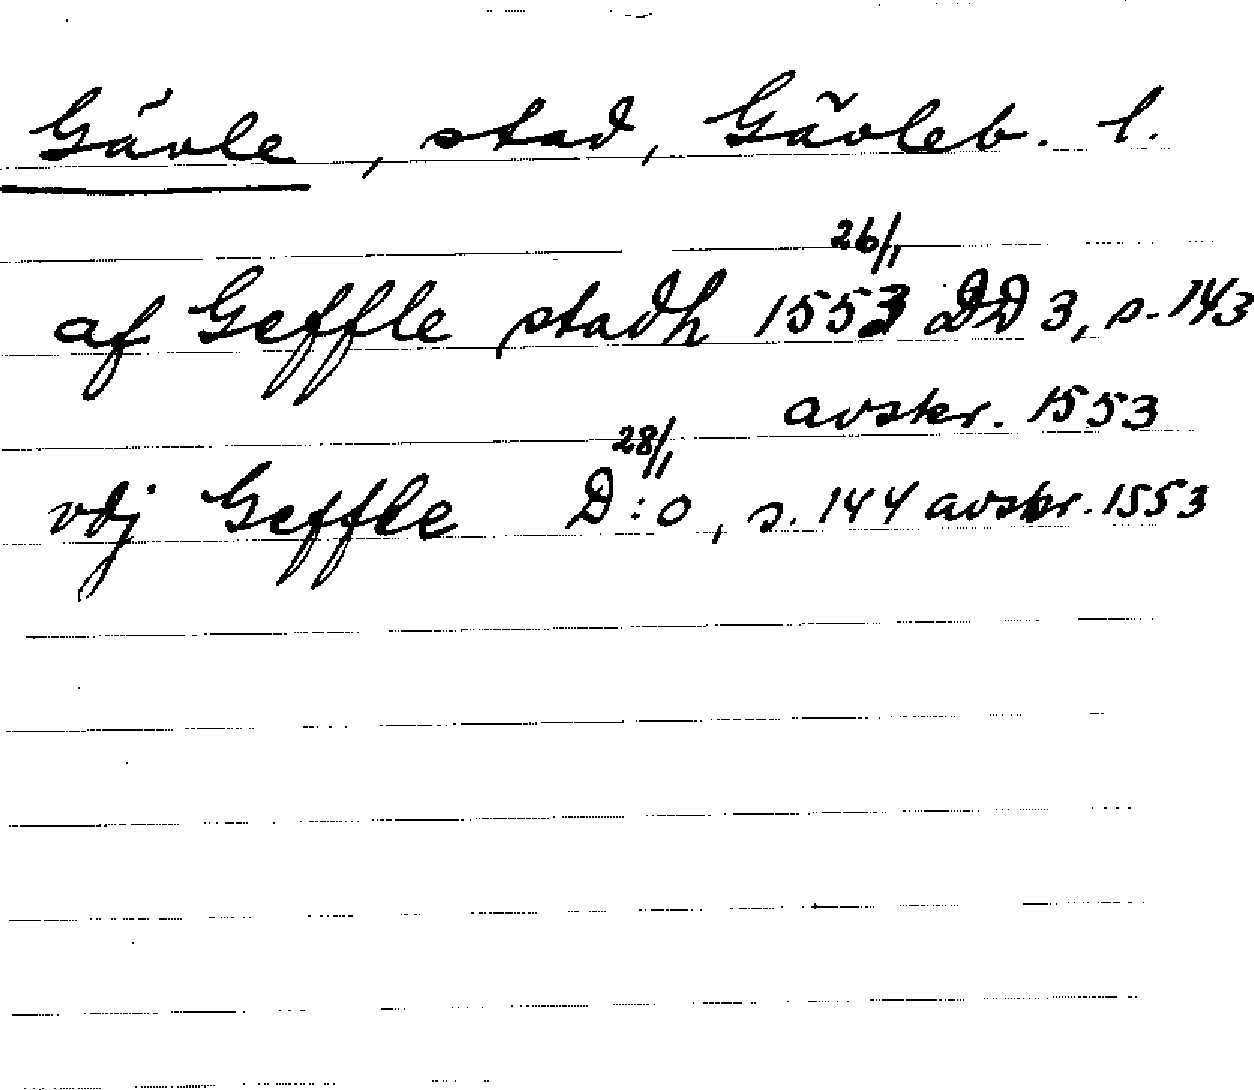 Gävle, stad, Gävleb. l.
af Geffle stadh 26/1 1553 DD 3, s. 143
avskr. 1553
vdj Geffle 28/1 D:o, s. 144 avskr. 1553